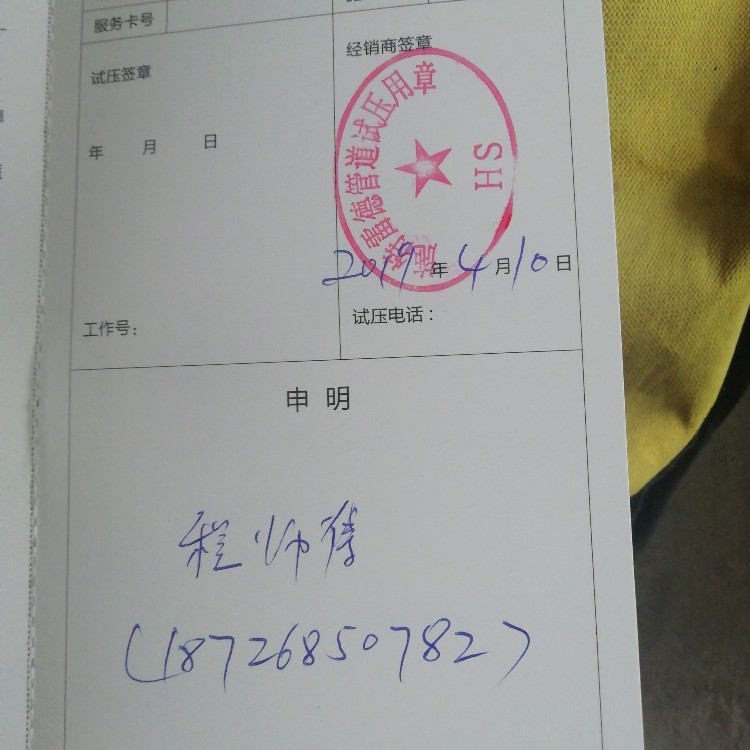 服务卡号
试压签章
年 月 日
工作号：
经销商签章
德管道试压用章
SH
2019年4月10日
试压电话：
申明
程师傅
(18726850782)